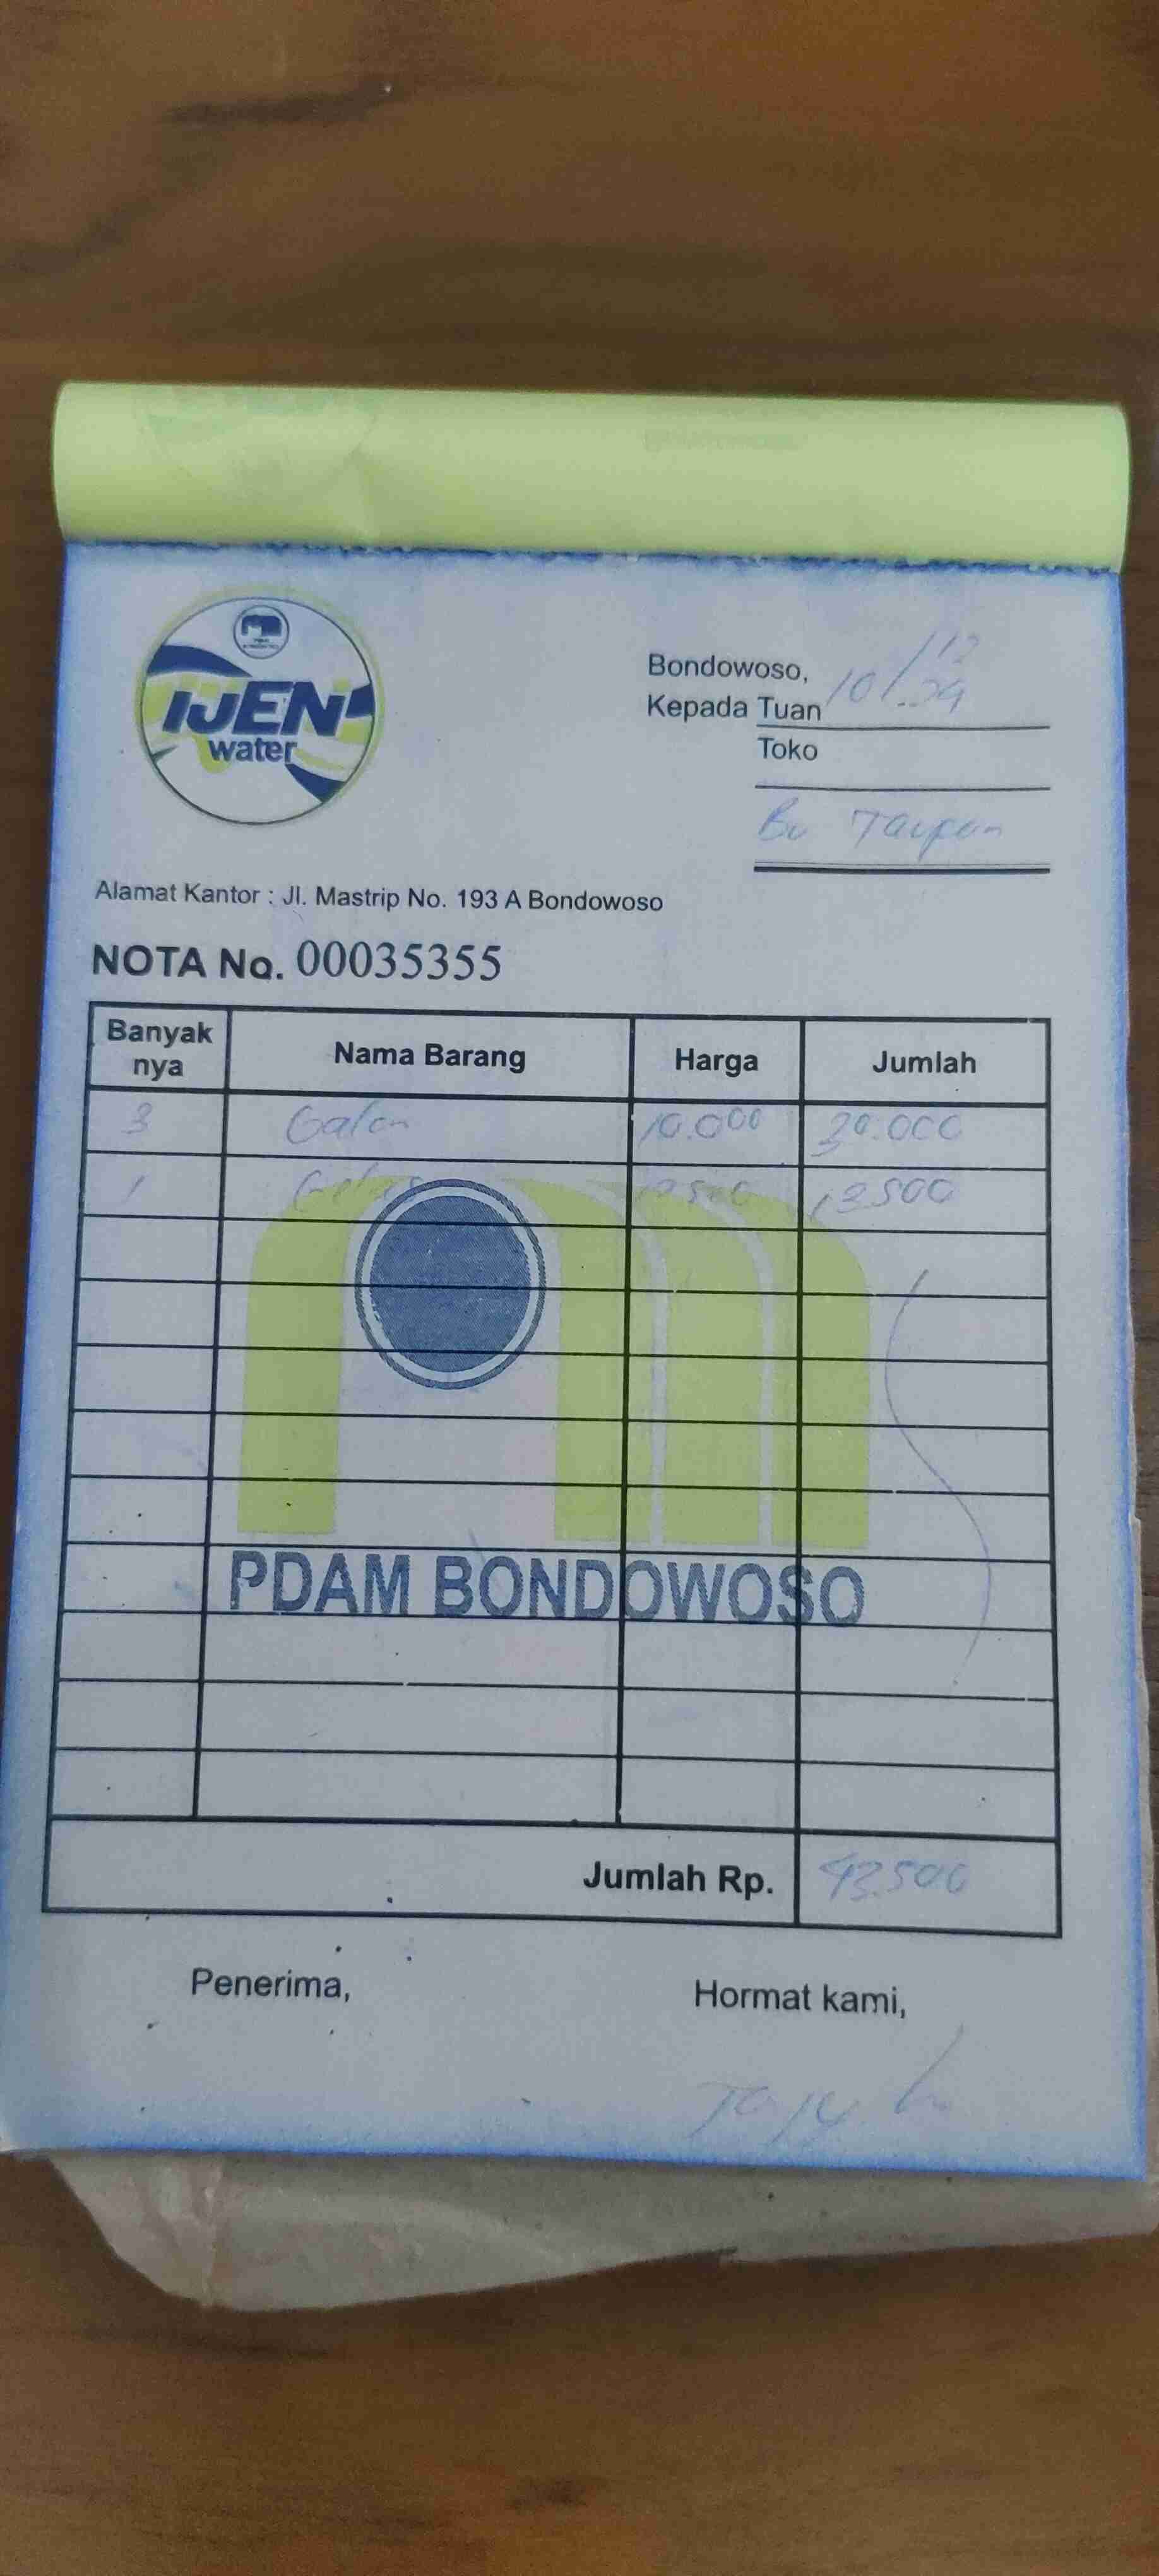 IJEN
water
Bondowoso, 10/12
Kepada Tuan
Toko
Bu
Alamat Kantor : Jl. Mastrip No. 193 A Bondowoso
NOTA No. 00035355
Banyak nya Nama Barang Harga Jumlah
3 Galon 10.000 30.000
1 13500
PDAM BONDOWOSO
Jumlah Rp. 43.500
Penerima, Hormat kami,